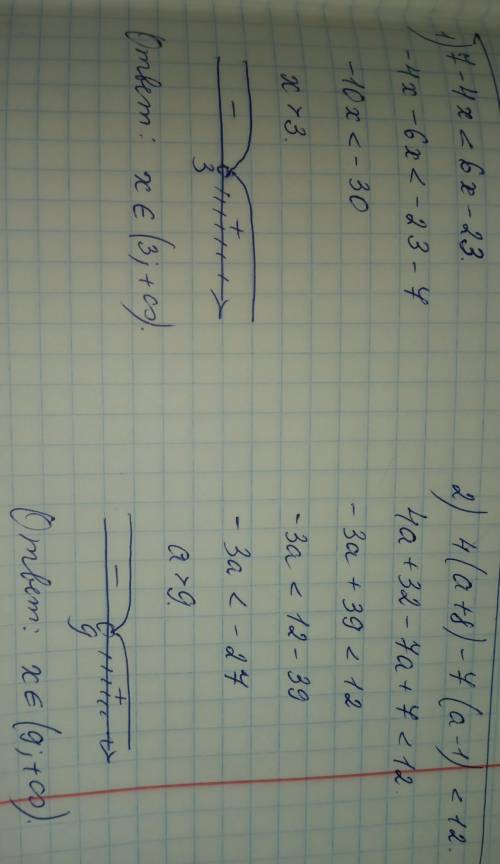 1) 7 - 4x < 6x - 23.
-4x - 6x < -23 - 7
-10x < -30
x > 3.
- +
3
Ответ: x ∈ (3; +∞).
2) 4(a+8) - 7(a-1) < 12.
4a + 32 - 7a + 7 < 12.
-3a + 39 < 12
-3a < 12 - 39
-3a < -27
a > 9.
- +
9
Ответ: x ∈ (9; +∞).